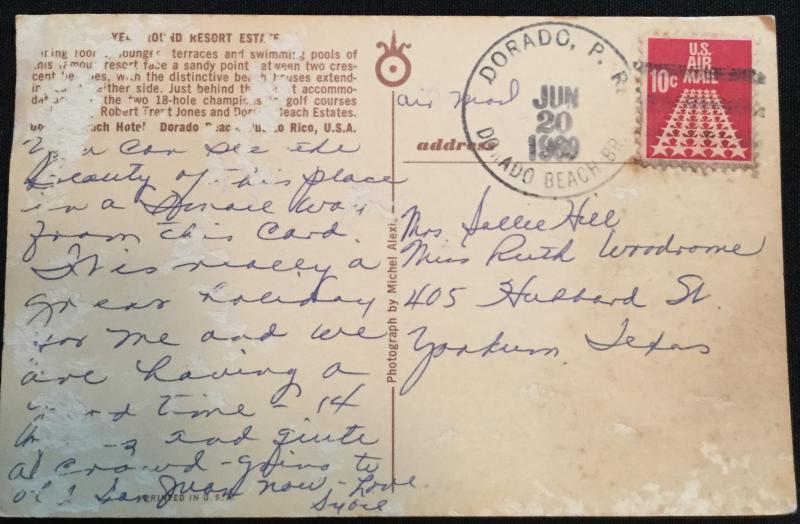 ROUND RESORT ESTATE
terraces and swimming pools of
this famous resort face a sandy point between two cres-
cent with the distinctive beach houses extend-
either side. Just behind the accommo-
the two 18-hole golf courses
Robert Trent Jones and Beach Estates.
Hotel Dorado Puerto Rico, U.S.A.
You can see the
beauty of this place
in a small way
from this card.
It is really a
great holiday
for me and we
are having a
time - 14
and quite
a crowd - going to
old San Juan now - Love
PRINTED IN U.S.A.
Photograph by Michel Alexi
air mail
address
DORADO, P. R.
JUN
20
1969
DORADO BEACH BR.
U.S.
AIR
MAIL
10c
Mrs Sallie Hill
Miss Ruth Woodrome
405 Hubbard St.
Yoakum, Texas